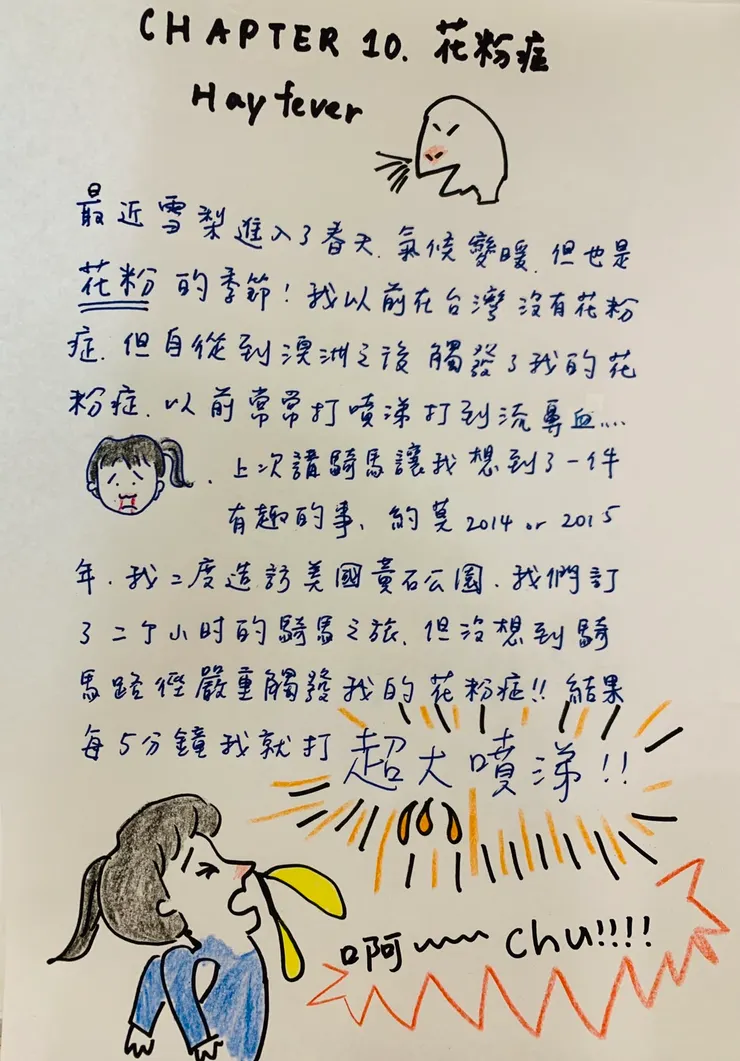 CHAPTER 10. 花粉症
Hay fever
最近雪梨進入了春天.氣候變暖.但也是
花粉的季節!我以前在台灣沒有花粉
症.但自從到澳洲之後觸發了我的花
粉症.以前常常打噴涕打到流鼻血....
.上次講騎馬讓我想到了一件
有趣的事、約莫2014 or 2015
年.我二度造訪美國黃石公園.我們訂
了二个小时的騎馬之旅.但沒想到騎
馬路徑嚴重觸發我的花粉症!!結果
每5分鐘我就打超大噴涕!!
啊~~~chu!!!!